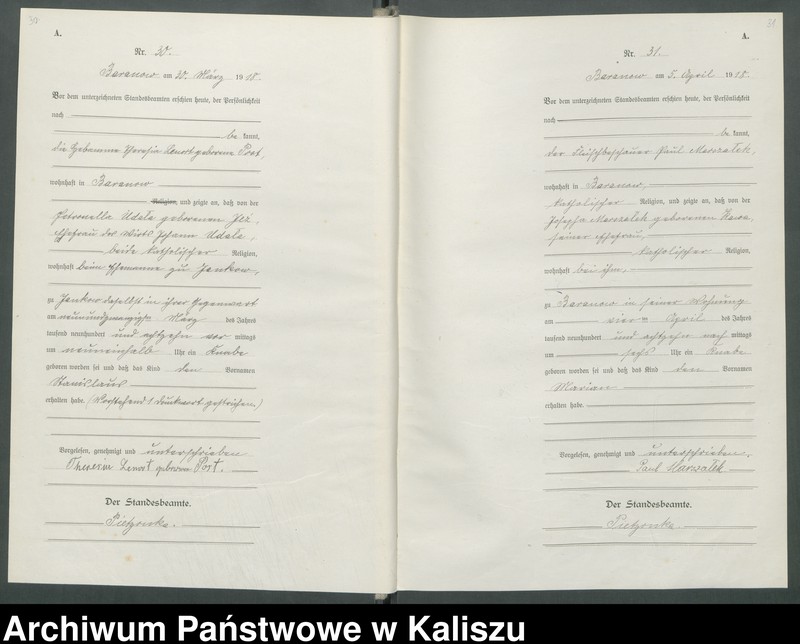 30
A.
Nr. 30.
Baranow am 30. März 1918.
Vor dem unterzeichneten Standesbeamten erschien heute, der Persönlichkeit
nach
be kannt,
die Hebamme Theresia Lenort geborene Post,
wohnhaft in Baranow
Religion, und zeigte an, daß von der
Petronella Udala geborenen
Ehefrau des Wirts Johann Udala,
beide katholischer Religion,
wohnhaft beim Ehemanne zu Jankow,
zu Jankow daselbst in ihrer Gegenwart
am neunundzwanzigsten März des Jahres
tausend neunhundert und achtzehn vor mittags
um neuneinhalb Uhr ein Knabe
geboren worden sei und daß das Kind den Vornamen
Stanislaus
erhalten habe. (Vorstehend 1 Druckwort gestrichen)
Vorgelesen, genehmigt und unterschrieben
Theresia Lenort geborene Post.
Der Standesbeamte.
Pietzonka.
31
A.
Nr. 31.
Baranow am 5. April 1918.
Vor dem unterzeichneten Standesbeamten erschien heute, der Persönlichkeit
nach
be kannt,
der Fleischbeschauer Paul Marszalek,
wohnhaft in Baranow,
katholischer Religion, und zeigte an, daß von der
Josepha Marszalek geborenen
seiner Ehefrau,
katholischer Religion,
wohnhaft bei ihm,
zu Baranow in seiner Wohnung
am vierten April des Jahres
tausend neunhundert und achtzehn nach mittags
um sechs Uhr ein Knabe
geboren worden sei und daß das Kind den Vornamen
Marian
erhalten habe.
Vorgelesen, genehmigt und unterschrieben.
Paul Marszałek
Der Standesbeamte.
Pietzonka.
Archiwum Państwowe w Kaliszu